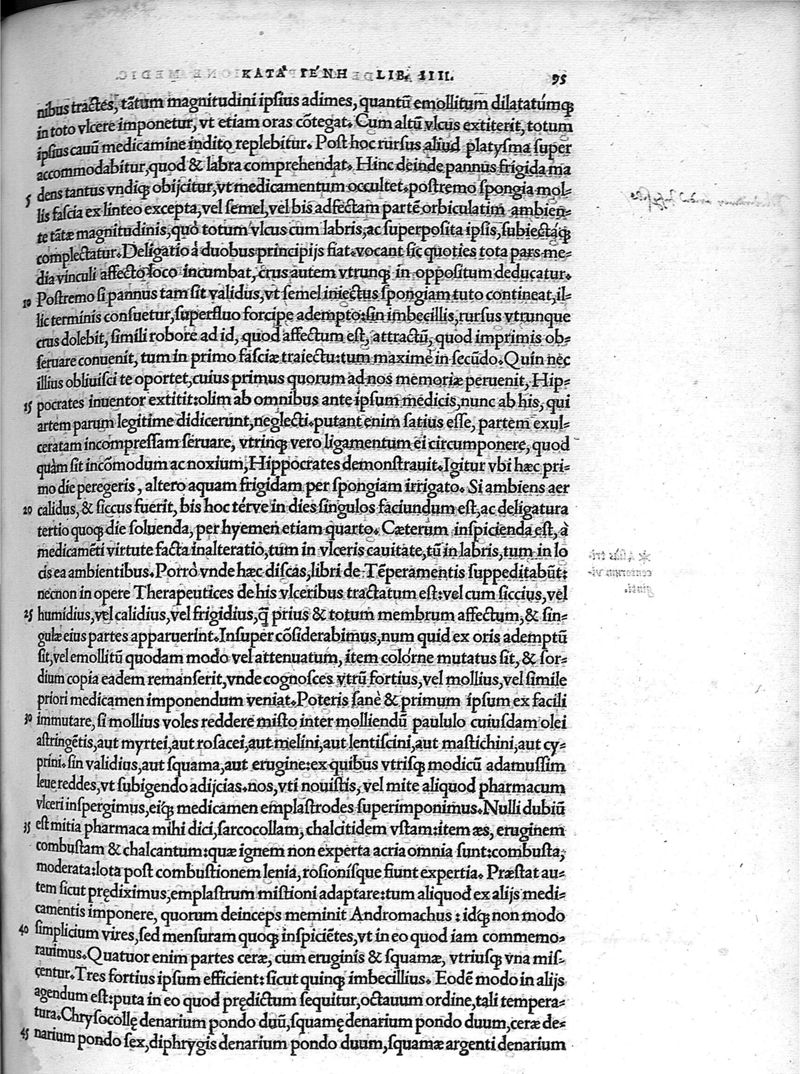 ΚΑΤΑ ΓΕΝΗ LIB. IIII. 95
nibus tractes, tātum magnitudini ipsius adimes, quantū emollitum dilatatúmq;
in toto vlcere imponetur, vt etiam oras cōtegat. Cum altū vlcus extiterit, totum
ipsius cauū medicamine indito replebitur. Post hoc rursus aliud platysma super
accommodabitur, quod & labra comprehendat. Hinc deinde pannus frigida ma
5 dens tantus vndiq; obijcitur, vt medicamentum occultet. postremo spongia mol-
lis fascia ex linteo excepta, vel semel, vel bis adfectam partē orbiculatim ambien-
te tātæ magnitudinis, quò totum vlcus cum labris, ac superposita ipsis, subiectáq;
complectatur. Deligatio à duobus principijs fiat. vocant sic quoties tota pars me-
dia vinculi affecto loco incumbat, crus autem vtrunq; in oppositum deducatur.
10 Postremo si pannus tam sit validus, vt semel iniectus spongiam tuto contineat, il-
lic terminis consuetur, superfluo forcipe adempto: sin imbecillis, rursus vtrunque
crus dolebit, simili robore ad id, quod affectum est, attractū, quod imprimis ob-
seruare conuenit, tum in primo fasciæ traiectu: tum maximè in secūdo. Quin nec
illius obliuisci te oportet, cuius primus quorum ad nos memoriæ peruenit, Hip-
15 pocrates inuentor extitit: olim ab omnibus ante ipsum medicis, nunc ab his, qui
artem parum legitime didicerunt, neglecti. putant enim satius esse, partem exul-
ceratam incompressam seruare, vtrinq; vero ligamentum ei circumponere, quod
quàm sit incōmodum ac noxium, Hippocrates demonstrauit. Igitur vbi hæc pri-
mo die peregeris, altero aquam frigidam per spongiam irrigato. Si ambiens aer
20 calidus, & siccus fuerit, bis hoc térve in dies singulos faciundum est, ac deligatura
tertio quoq; die soluenda, per hyemen etiam quarto. Cæterum inspicienda est, à
medicamēti virtute facta inalteratio, tum in vlceris cauitate, tū in labris, tum in lo
cis ea ambientibus. Porrò vnde hæc discas, libri de Tēperamentis suppeditabūt:
necnon in opere Therapeutices de his vlceribus tractatum est: vel cum siccius, vel
25 humidius, vel calidius, vel frigidius, q̄ prius & totum membrum affectum, & sin-
gulæ eius partes apparuerint. Insuper cōsiderabimus, num quid ex oris ademptū
sit, vel emollitū quodam modo vel attenuatum, item colórne mutatus sit, & sor-
dium copia eadem remanserit, vnde cognosces vtrū fortius, vel mollius, vel simile
priori medicamen imponendum veniat. Poteris sanè & primum ipsum ex facili
30 immutare, si mollius voles reddere misto inter molliendū paululo cuiusdam olei
astringētis, aut myrtei, aut rosacei, aut melini, aut lentiscini, aut mastichini, aut cy-
prini. sin validius, aut squama, aut erugine: ex quibus vtrisq; modicū adamussim
leue reddes, vt subigendo adijcias. nos, vti nouistis, vel mite aliquod pharmacum
vlceri inspergimus, eiq; medicamen emplastrodes superimponimus. Nulli dubiū
35 est mitia pharmaca mihi dici, sarcocollam, chalcitidem vstam: item æs, eruginem
combustam & chalcantum: quæ ignem non experta acria omnia sunt: combusta,
moderata: lota post combustionem lenia, rosionisque fiunt expertia. Præstat au-
tem sicut prędiximus, emplastrum mistioni adaptare: tum aliquod ex alijs medi-
camentis imponere, quorum deinceps meminit Andromachus: idq; non modo
40 simplicium vires, sed mensuram quoq; inspiciētes, vt in eo quod iam commemo-
rauimus. Quatuor enim partes ceræ, cum eruginis & squamæ, vtriusq; vna mis-
centur. Tres fortius ipsum efficient: sicut quinq; imbecillius. Eodē modo in alijs
agendum est: puta in eo quod prędictum sequitur, octauum ordine, tali tempera-
tura. Chrysocollę denarium pondo duū, squamę denarium pondo duum, ceræ de-
45 narium pondo sex, diphrygis denarium pondo duum, squamæ argenti denarium